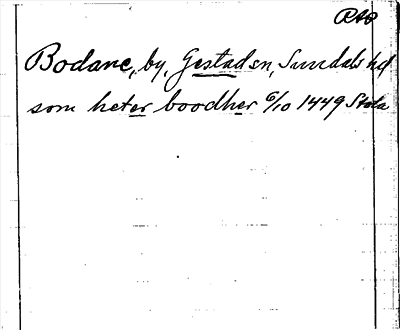 RAP
Bodane, by, Gestad sn, Sundals hd
som heter boodher 6/10 1449 Stola